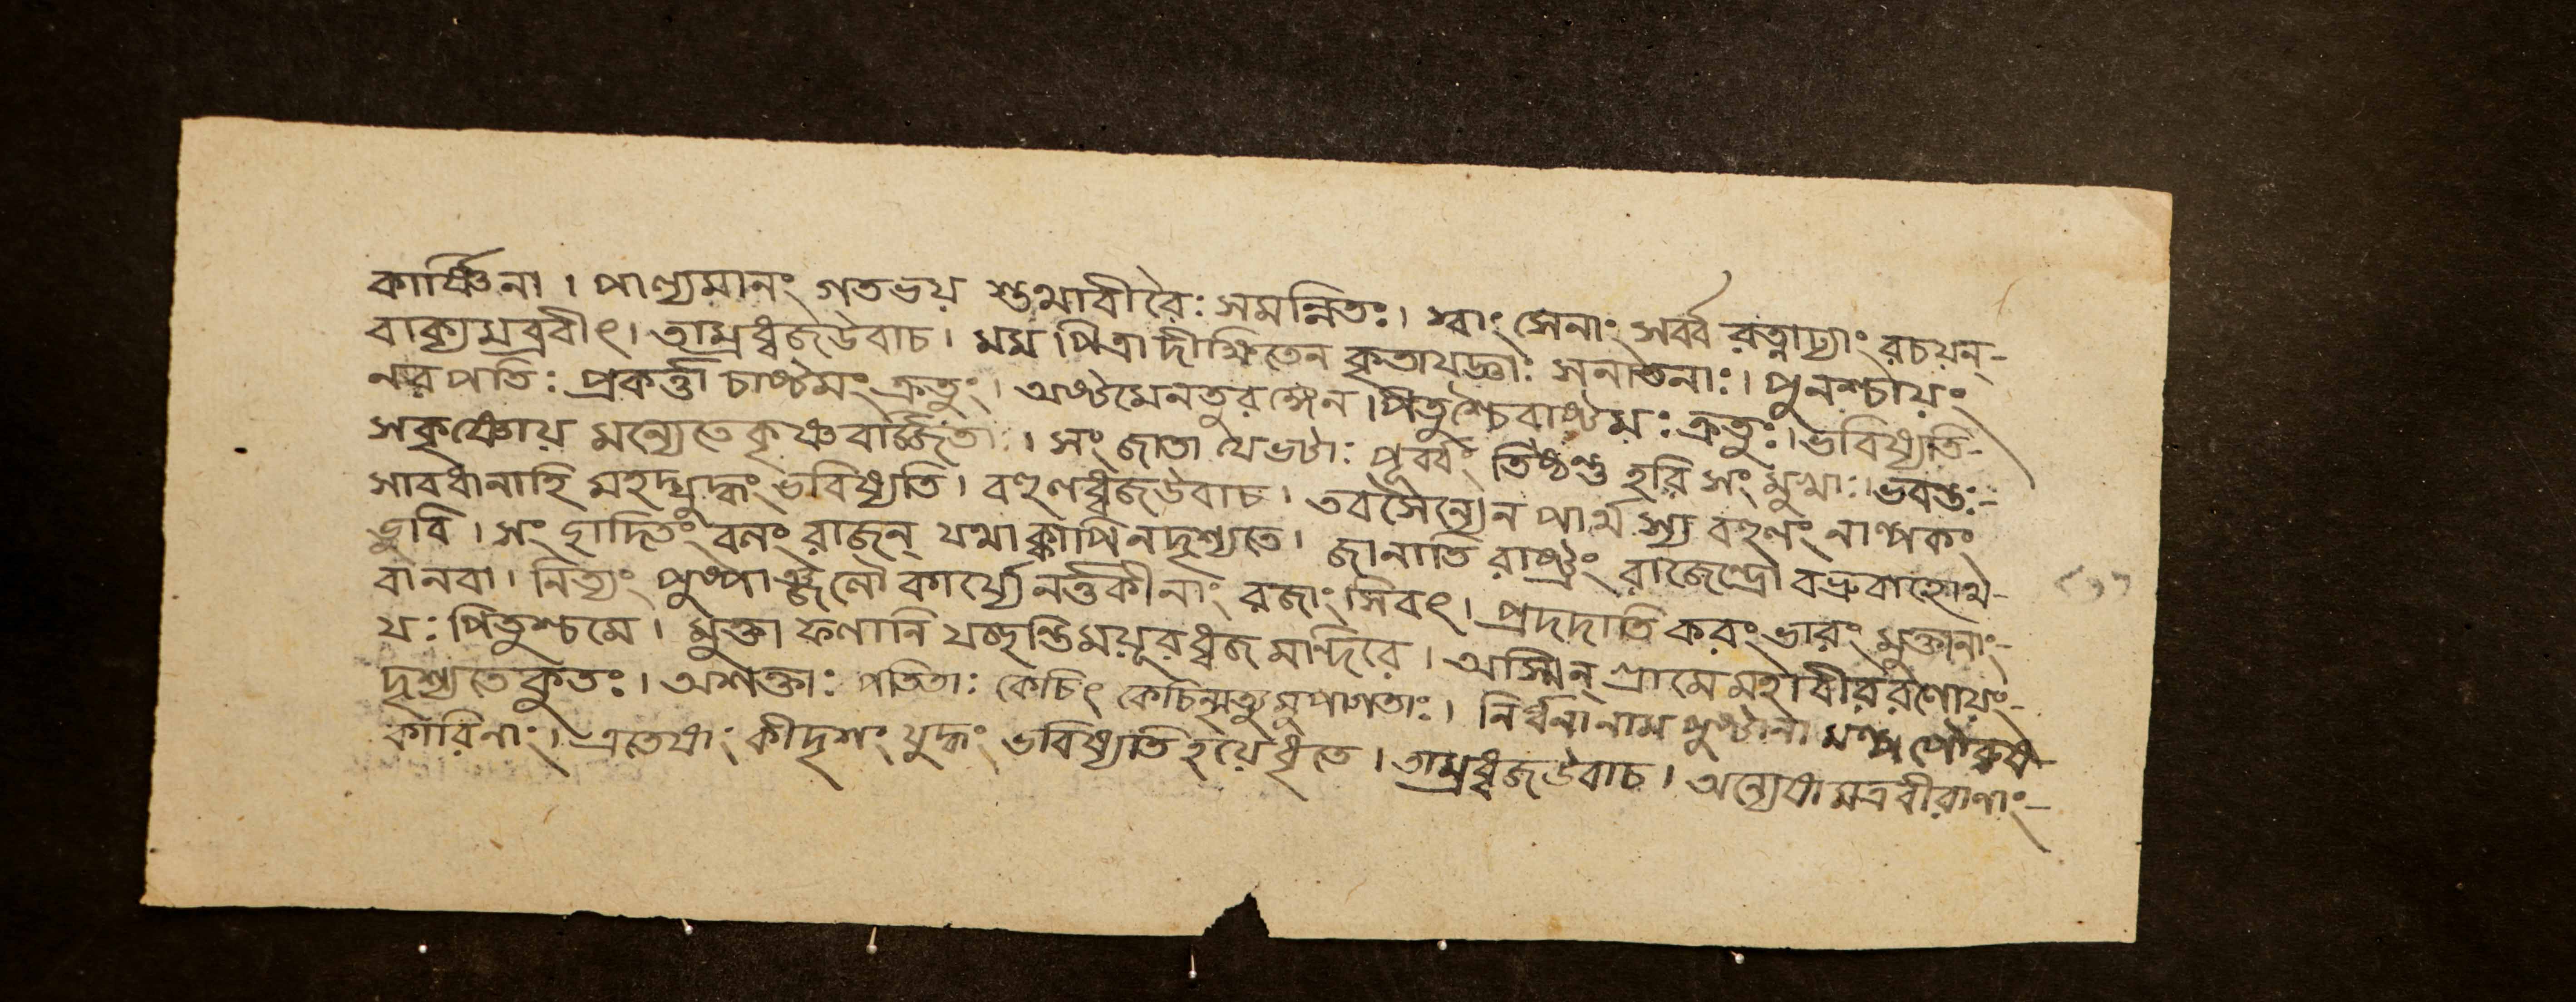 কার্ষ্ণিনা । পাল্যমানং গতভয় শুভাবীরৈঃ সমন্নিতঃ । স্বাং সেনাং সর্ব্ব রত্নাঢ্যাং রচয়ন্-
বাক্যমব্রবীৎ । তাম্রধ্বজউবাচ । মম পিত্রাদীক্ষিতেন কৃতাযজ্ঞাঃ সনাতনাঃ । পুনশ্চায়ং
নরপতিঃ প্রকর্ত্তা চাষ্টমং ক্রতুং । অষ্টমেনতুরঙ্গেন পিতুশ্চৈবাষ্টমঃ ক্রতুঃ । ভবিষ্যতি-
সকৃষ্ণোয় মন্যেতেকৃষ্ণবর্জ্জিতা । সংজাতা যেভটাঃ পূর্ব্বং তিষ্ঠন্তু হরি সংমুখাঃ । ভবন্তঃ-
সাবধানাহি মহদ্যুদ্ধং ভবিষ্যতি । বহুলধ্বজউবাচ । তবসৈন্যেন পার্থস্য বহুলং নাল্পকং
ভুবি । সংছাদিতং বনং রাজন্ যথাক্কাপিনদৃশ্যতে । জানাতি রাষ্ট্রং রাজেন্দ্রো বভ্রুবাহোথ-
বানবা । নিত্যং পুষ্পাঞ্জলৌ কার্য্যে নর্ত্তকীনাং রজাংসিবৎ । প্রদদাতি করং ভারং মুক্তানাং-
যঃ পিতুশ্চমে । মুক্তা ফলানি যচ্ছন্তিময়ূরধ্বজ মন্দিরে । অস্মিন্ গ্রামেমহাবীররণোয়ং-
দৃশ্যতেকুতঃ । অশক্তাঃ পতিতাঃ কেচিৎ কেচিন্মৃত্যুমুপাগতাঃ । নির্ধনানাম পুষ্টানা মল্প পৌরুষ-
কারিনাং । এতেষাং কীদৃশং যুদ্ধং ভবিষ্যতি হয়েধৃতে । তাম্রধ্বজউবাচ । অন্যেষামত্রবীরাণাং-